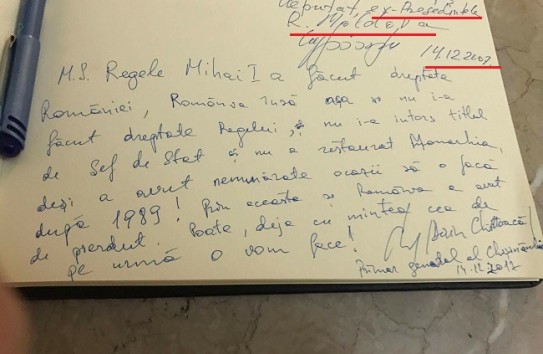 Deputat, ex-Președinte
R. Moldova
14.12.2017
M.S. Regele Mihai I a făcut dreptate
României, România însă așa și nu i-a
făcut dreptate Regelui, și nu i-a întors titlul
de Șef de Stat și nu a restaurat Monarhia,
deși a avut nenumărate ocazii să o facă
după 1989! Prin aceasta și România a avut
de pierdut. Poate, deja cu mintea cea de
pe urmă o vom face! Dorin Chirtoacă
Primar general al Chișinăului
14.12.2017